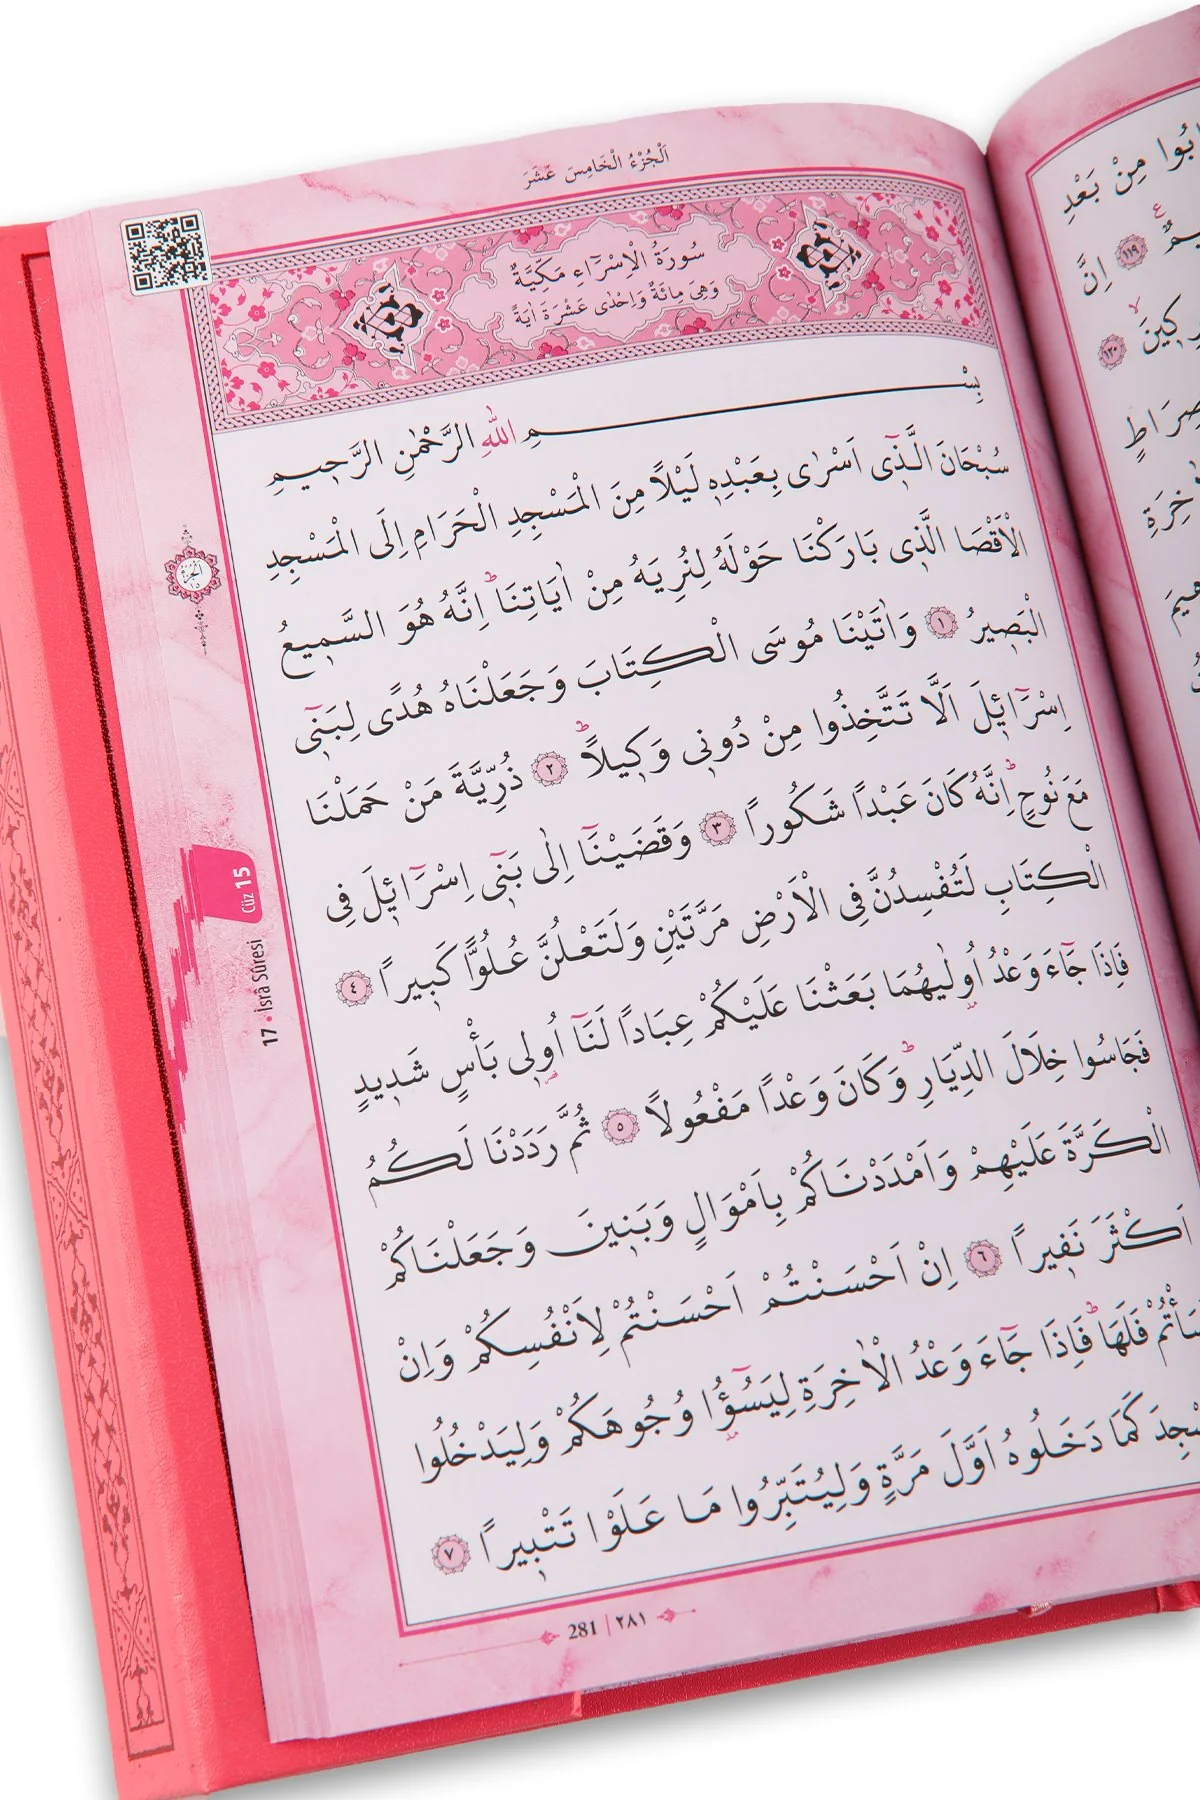 اَلْجُزْءُ الْخَامِسَ عَشَرَ
سُورَةُ الْاِسْرَٓاءِ مَكِّيَّةٌ
وَهِيَ مِائَةٌ وَاِحْدٰى عَشْرَةَ اٰيَةً
بِسْمِ اللّٰهِ الرَّحْمٰنِ الرَّحٖيمِ
سُبْحَانَ الَّذٖٓى اَسْرٰى بِعَبْدِهٖ لَيْلًا مِنَ الْمَسْجِدِ الْحَرَامِ اِلَى الْمَسْجِدِ
الْاَقْصَا الَّذٖى بَارَكْنَا حَوْلَهُ لِنُرِيَهُ مِنْ اٰيَاتِنَاۜ اِنَّهُ هُوَ السَّمٖيعُ
الْبَصٖيرُ ﴿١﴾ وَاٰتَيْنَا مُوسَى الْكِتَابَ وَجَعَلْنَاهُ هُدًى لِبَنٖٓى
اِسْرَٓائٖلَ اَلَّا تَتَّخِذُوا مِنْ دُونٖى وَكٖيلًاۜ ﴿٢﴾ ذُرِّيَّةَ مَنْ حَمَلْنَا
مَعَ نُوحٍۜ اِنَّهُ كَانَ عَبْدًا شَكُورًا ﴿٣﴾ وَقَضَيْنَٓا اِلٰى بَنٖٓى اِسْرَٓائٖلَ فِى
الْكِتَابِ لَتُفْسِدُنَّ فِى الْاَرْضِ مَرَّتَيْنِ وَلَتَعْلُنَّ عُلُوًّا كَبٖيرًا ﴿٤﴾
فَاِذَا جَٓاءَ وَعْدُ اُولٰيهُمَا بَعَثْنَا عَلَيْكُمْ عِبَادًا لَنَٓا اُولٖى بَأْسٍ شَدٖيدٍ
فَجَاسُوا خِلَالَ الدِّيَارِۜ وَكَانَ وَعْدًا مَفْعُولًا ﴿٥﴾ ثُمَّ رَدَدْنَا لَكُمُ
الْكَرَّةَ عَلَيْهِمْ وَاَمْدَدْنَاكُمْ بِاَمْوَالٍ وَبَنٖينَ وَجَعَلْنَاكُمْ
اَكْثَرَ نَفٖيرًا ﴿٦﴾ اِنْ اَحْسَنْتُمْ اَحْسَنْتُمْ لِاَنْفُسِكُمْ وَاِنْ
فَلَهَاۜ فَاِذَا جَٓاءَ وَعْدُ الْاٰخِرَةِ لِيَسُٓؤُا وُجُوهَكُمْ وَلِيَدْخُلُوا
كَمَا دَخَلُوهُ اَوَّلَ مَرَّةٍ وَلِيُتَبِّرُوا مَا عَلَوْا تَتْبٖيرًا ﴿٧﴾
281 | ٢٨١
17 • İsrâ Sûresi
Cüz 15
الجزء ١٥
مِنْ بَعْدِ
﴿١١٩﴾ اِنَّ
﴿١٢٠﴾